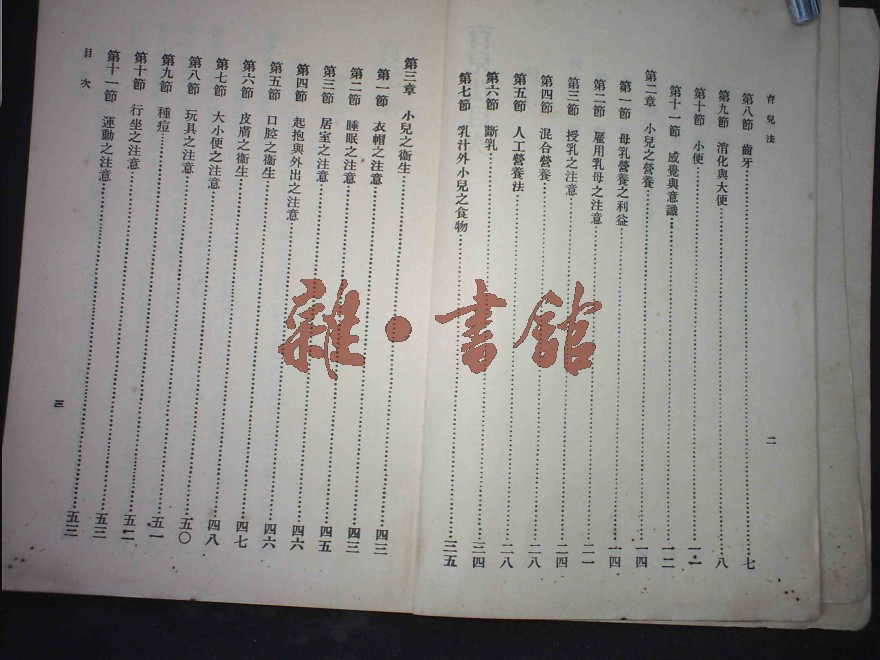 育兒法
第八節 齒牙……七
第九節 消化與大便……八
第十節 小便……一一
第十一節 感覺與意識……一二
第二章 小兒之營養……一四
第一節 母乳營養之利益……一四
第二節 雇用乳母之注意……二一
第三節 授乳之注意……二四
第四節 混合營養……二八
第五節 人工營養法……二八
第六節 斷乳……三四
第七節 乳汁外小兒之食物……三五
二
第三章 小兒之衞生……四三
第一節 衣帽之注意……四三
第二節 睡眠之注意……四三
第三節 居室之注意……四五
第四節 起抱與外出之注意……四六
第五節 口腔之衞生……四六
第六節 皮膚之衞生……四七
第七節 大小便之注意……四八
第八節 玩具之注意……五〇
第九節 種痘……五一
第十節 行坐之注意……五二
第十一節 運動之注意……五三
目次
三
雜·書館